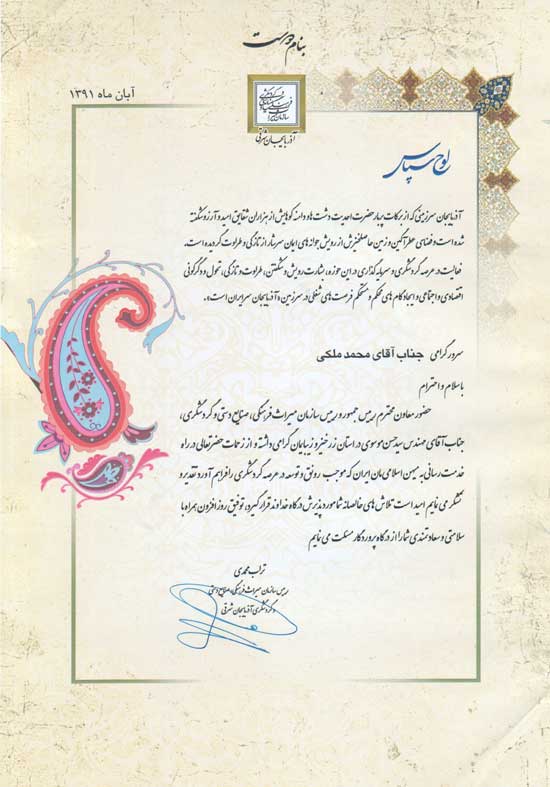 بنام دوست
آبان ماه ۱۳۹۱
آذربایجان شرقی
لوح سپاس
آذربایجان سرزمینی که از برکات بهار حضرت احدیت دشت ها و دامنه کوهایش از هزاران شقایق امید و آرزو شکفته
شده است و فضای عطرآگین و زمین حاصلخیزش از رویش جوانه های ایمان سرشار از تازگی و طراوت گردیده است.
فعالیت در عرصه گردشگری و سرمایه گذاری در این حوزه، بشارت رویش و شکفتن، طراوت و تازگی، تحول و دگرگونی
اقتصادی و اجتماعی و ایجاد گام های محکم و مستحکم فرصت های شغلی در سرزمین «آذربایجان سر ایران است».
سرور گرامی جناب آقای محمد ملکی
با سلام و احترام
حضور معاون محترم رییس جمهور و رییس سازمان میراث فرهنگی، صنایع دستی و گردشگری،
جناب آقای مهندس سید حسن موسوی در استان زرخیز و زیبایمان گرامی داشته و از زحمات حضرتعالی در راه
خدمت رسانی به میهن اسلامی مان ایران که موجب رونق و توسعه در عرصه گردشگری را فراهم آورد تقدیر و
تشکر می نمایم امید است تلاش های خالصانه شما مورد پذیرش درگاه خداوند قرار گیرد، توفیق روز افزون همراه با
سلامتی و سعادتمندی شما را از درگاه پروردگار مسئلت می نمایم
تراب محمدی
رییس سازمان میراث فرهنگی، صنایع دستی
و گردشگری آذربایجان شرقی